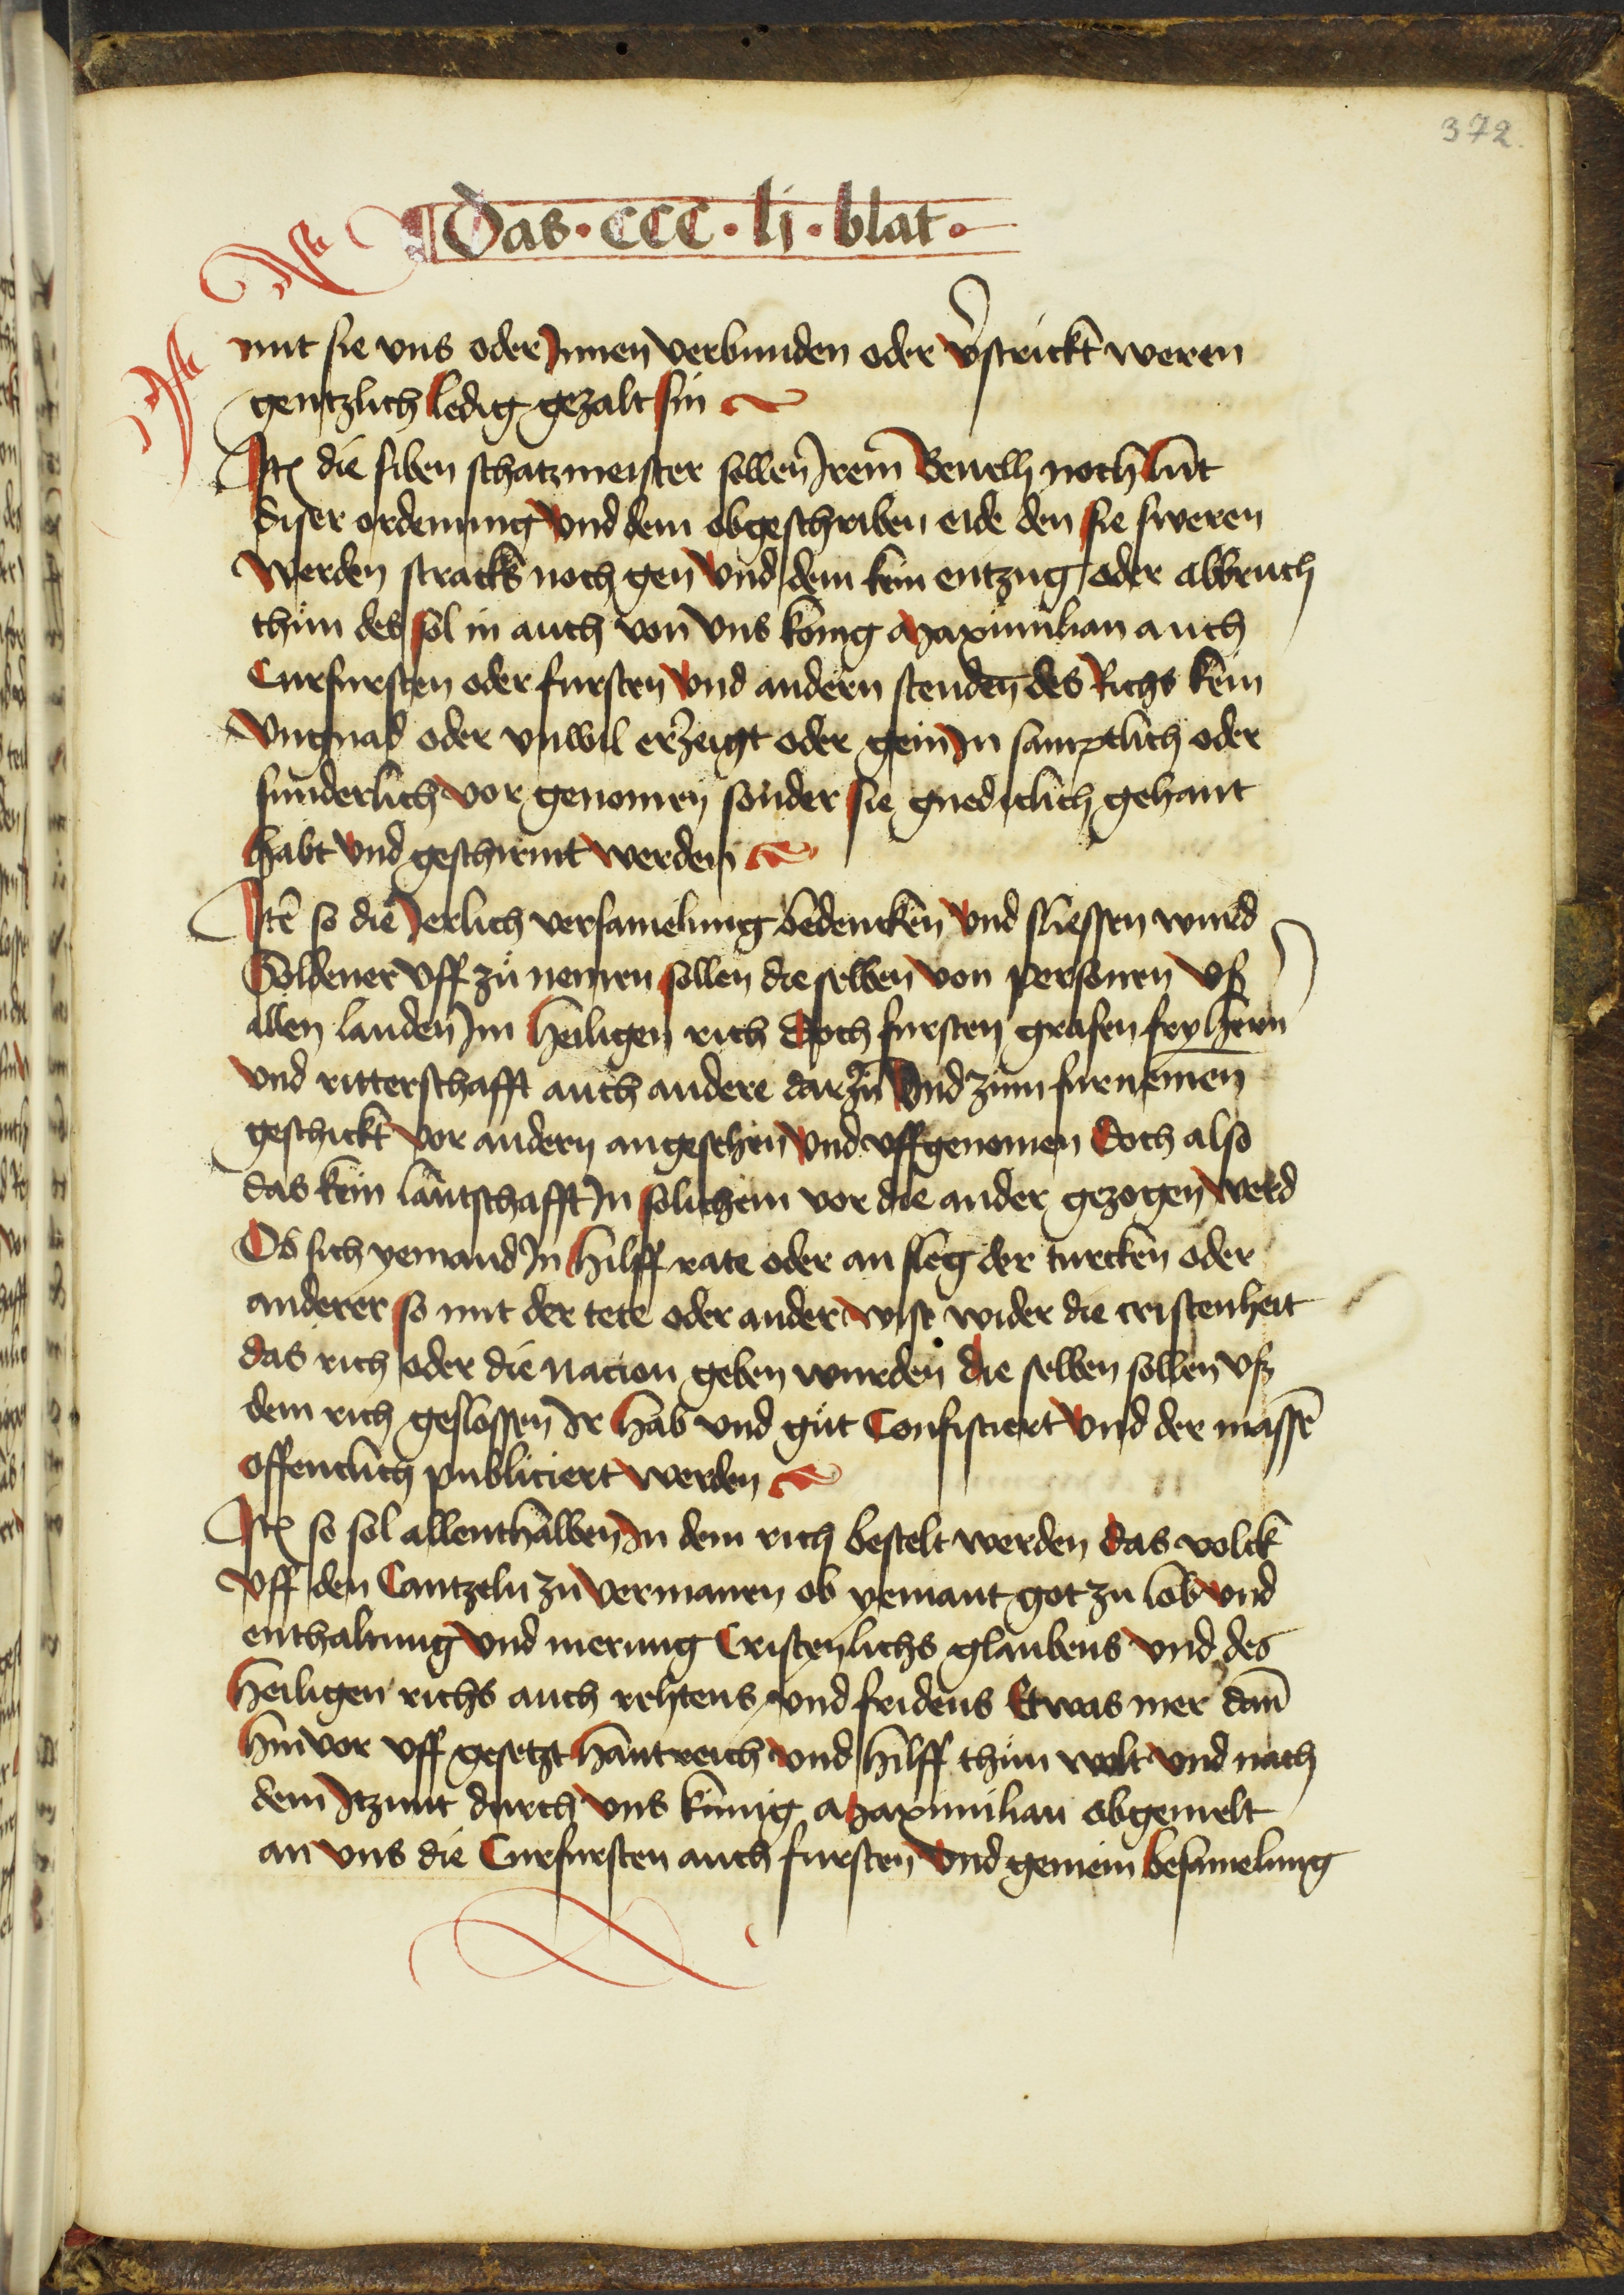 372.
Das · CCC · lj · blat ·
mit sie vns oder Innen verbunden oder v̉strickt weren
gentzlich ledig gezalt sin
Itē die siben schatzmeister sollen Irem Beuelh noch lut
diser ordenung vnd dem obgeschriben eide den sie sweren
werden stracks noch gen vnd dem kein entzug oder abbruch
thun des sol in auch von vns kōnig Maximilian auch
Curfursten oder fursten vnd andern stenden des Richs kein
vngnad oder vnwil erzeigt oder gein In samptlich oder
sunderlich vor genomen sonder sie gnediclich gehant
habt vnd geschirmt werden
Itē so die Jerlich versamelung bedencken vnd sliessen wurd
Soldener vff zů nemen sollen die selben von personen vß
allen landen Im heiligen rich Doch fursten grafen fryhern
vnd ritterschafft auch andere darzů vnd zum furnemen
geschickt vor andern angesehen vnd vffgenomen Doch also
das kein lantschafft In solichem vor die ander gezogen werd
Ob sich yemand In hilff rate oder an sleg der turcken oder
anderer so mit der tete oder ander wise wider die cristenheit
das rich oder die nacion geben wurden die selben sollen vß
dem rich geslossen Ir hab vnd gůt Confisciert vnd der massē
offentlich publiciert werden
Itē so sol allenthalben In dem rich bestelt werden das volck
vff den Cantzeln zu vermanen ob yemant got zu lob vnd
enthaltung vnd merung Cristenlichs glaubens vnd des
heiligen richs auch rehtens vnd fridens Etwas mer dan̄
hinvor vff gesetzt hantreich vnd hilff thůn wolt vnd nach
dem Itzunt durch vns kunig Maximilian obgemelt
an vns die Curfursten auch fursten vnd gemein besamelung